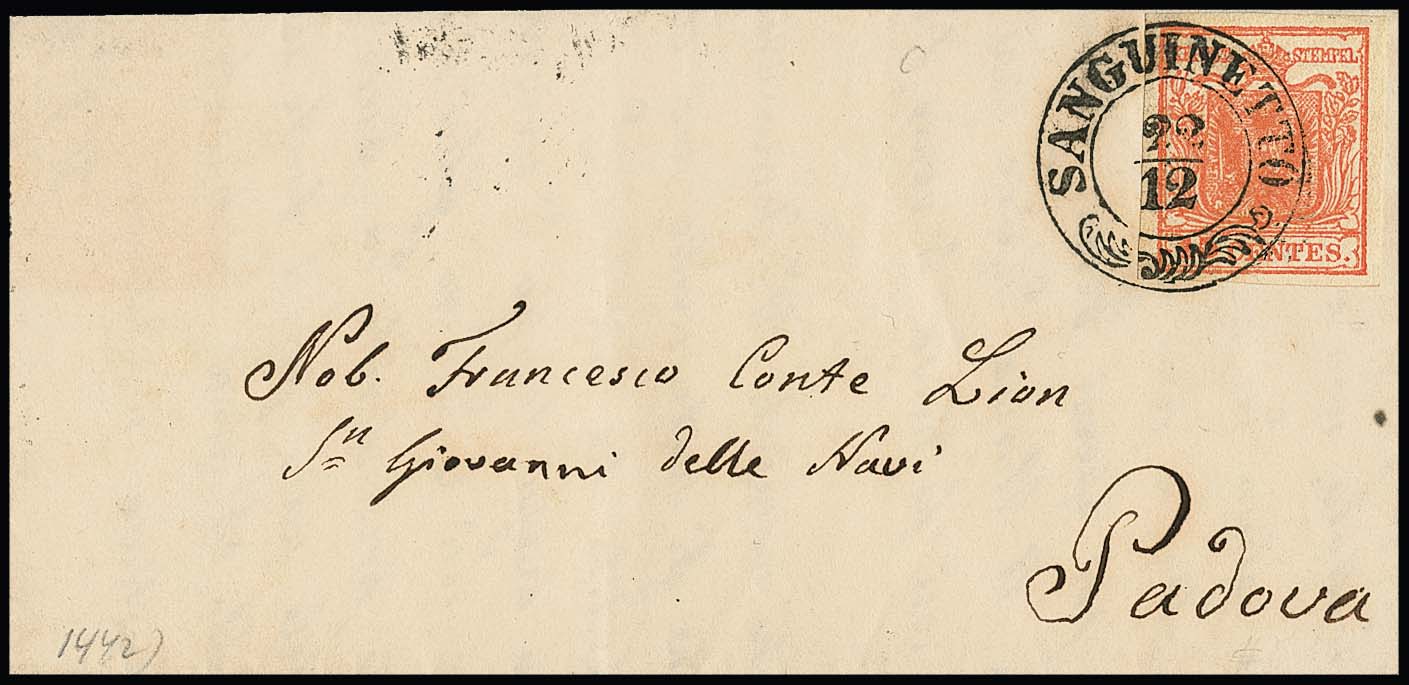 STEMPEL
SANGUINETTO
12
CENTES.
Nob. Francesco Conte Lion
Sn Giovanni delle Navi
Padova
1442)